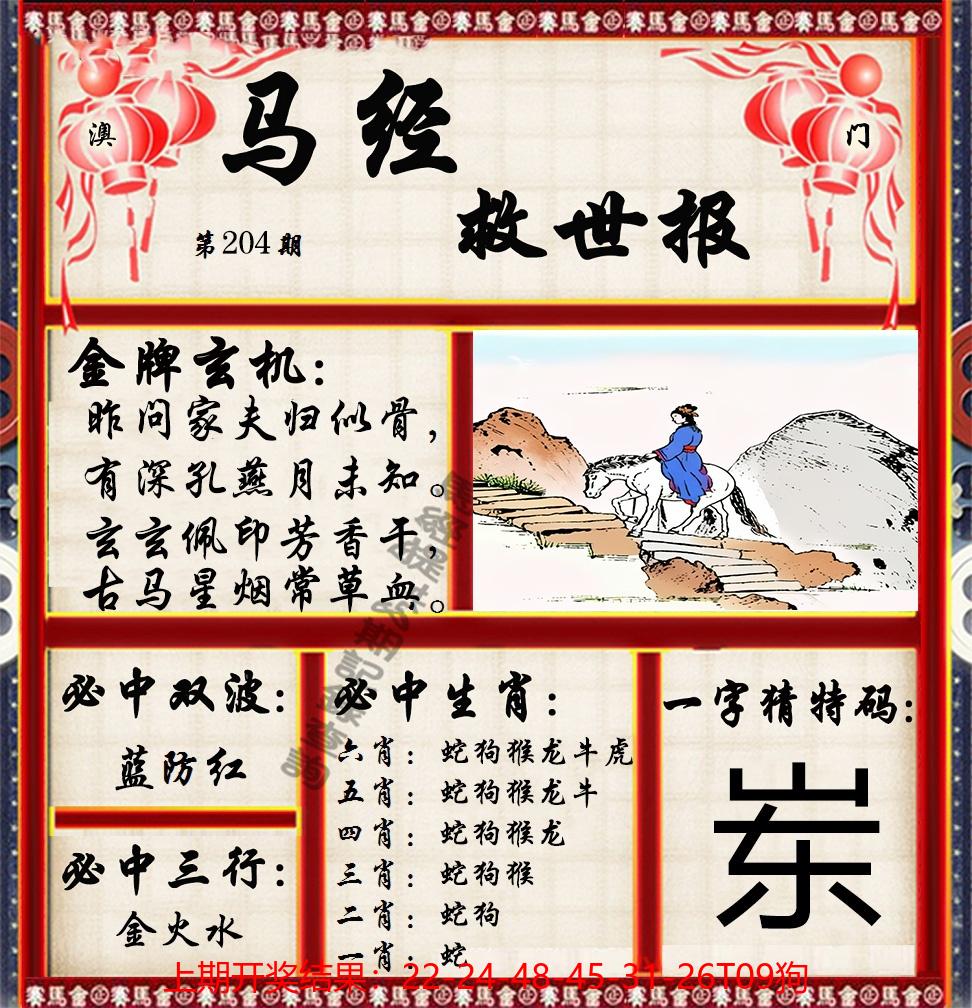 澳
门
马经
救世报
第204期
金牌玄机：
昨问家夫归似骨，
有深孔燕月未知。
玄玄佩印芳香干，
古马星烟常草血。
必中双波：
蓝防红
必中三行：
金火水
必中生肖：
六肖：蛇狗猴龙牛虎
五肖：蛇狗猴龙牛
四肖：蛇狗猴龙
三肖：蛇狗猴
二肖：蛇狗
一肖：蛇
一字猜特码：
岽
上期开奖结果：22-24-48-45-31-26T09狗